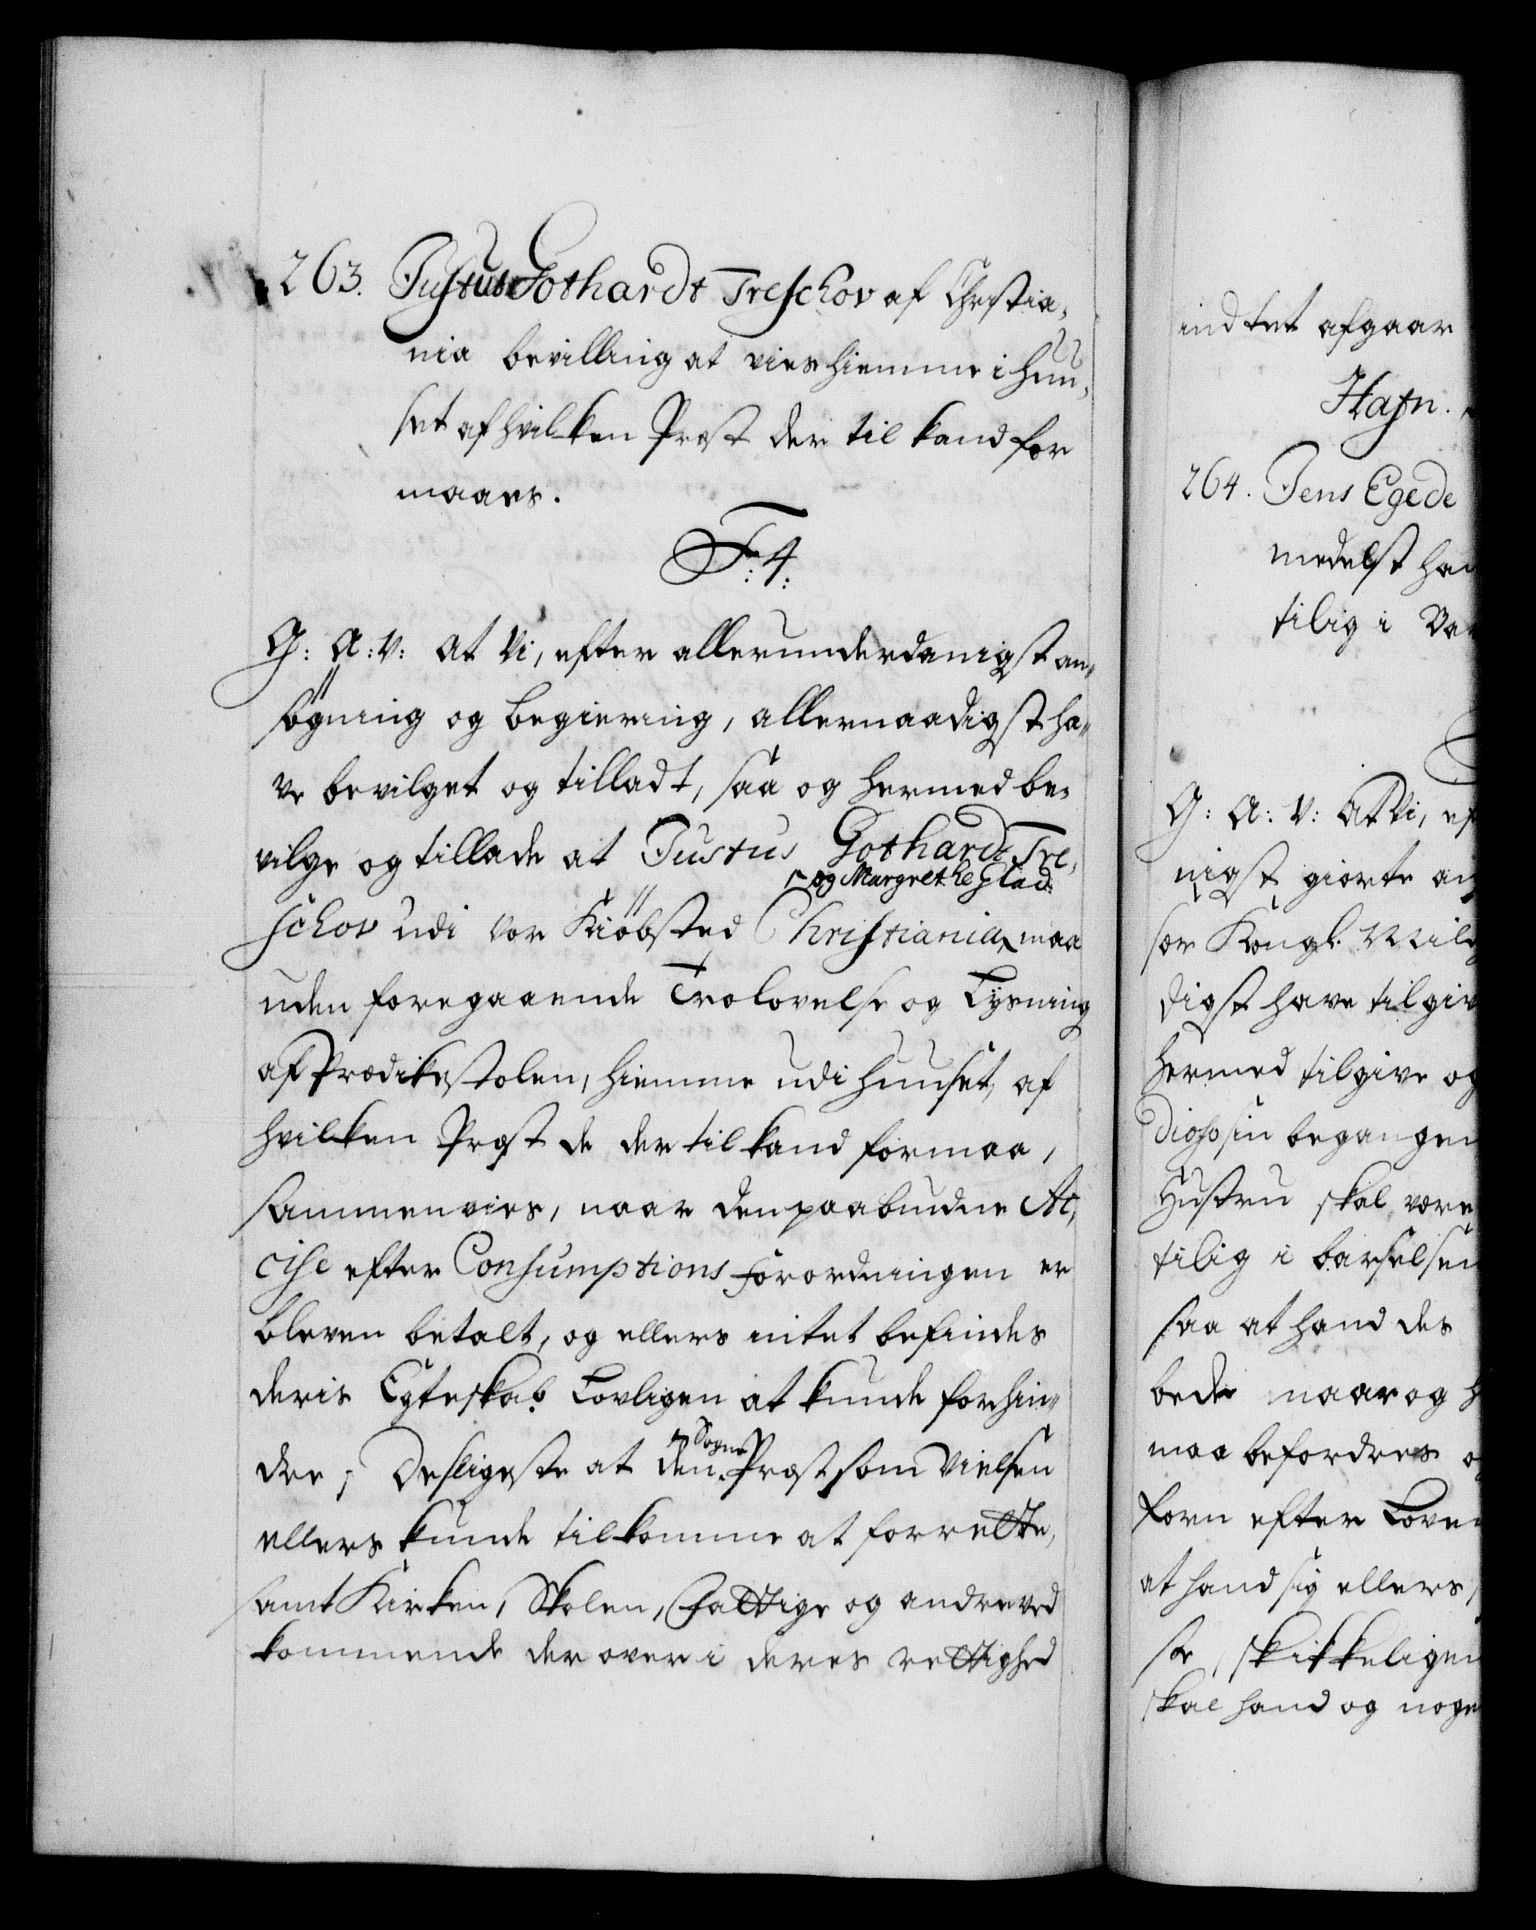 263. Justus Gothardt Treschov af Christia,
nia bevilling at vies hiemme i huu,
set af hvilken Præst der til kand for
maaes.
F: 4:
G: A: V: at Vi, efter allerunderdanigst an,,
søgning og begiering, allernaadigst ha,,
ve bevilget og tilladt, saa og hermed be,
vilge og tillade at Justus Gothardt Tre,
og Margrethe Glad
schov udi vor Kiøbsted Christiania maa
uden foregaaende Trolovelse og Lysning
af Prædikestolen, hiemme udi huuset, af
hvilken Præst de der til kand formaa,
sammenvies, naar den paabudne Ac,
cise efter Consumptions Forordningen er
bleven betalt, og ellers intet befindes
deris Egteskab Lovligen at kunde forhin,,
dre; Desligeste at den Sogne Præst som Vielsen
ellers kunde tilkomme at forrette,
samt Kirken, Skolen, Fattige og andre ved
kommende der over i deres rettighed
indtet afgaar
Hafn.
264. Jens Egede
medelst han
tilig i Bar
G: A: V: At Vi, ef
nigst giorte an
for Kongl. Mild
digst have tilgiv
hermed tilgive og
begangen
Hustru skal være
tilig i barselsen
saa at hand des
bedre naar og h
maa befordres o
forn efter Loven
at hand sig ellers
skikkeligen
skal hand og noge